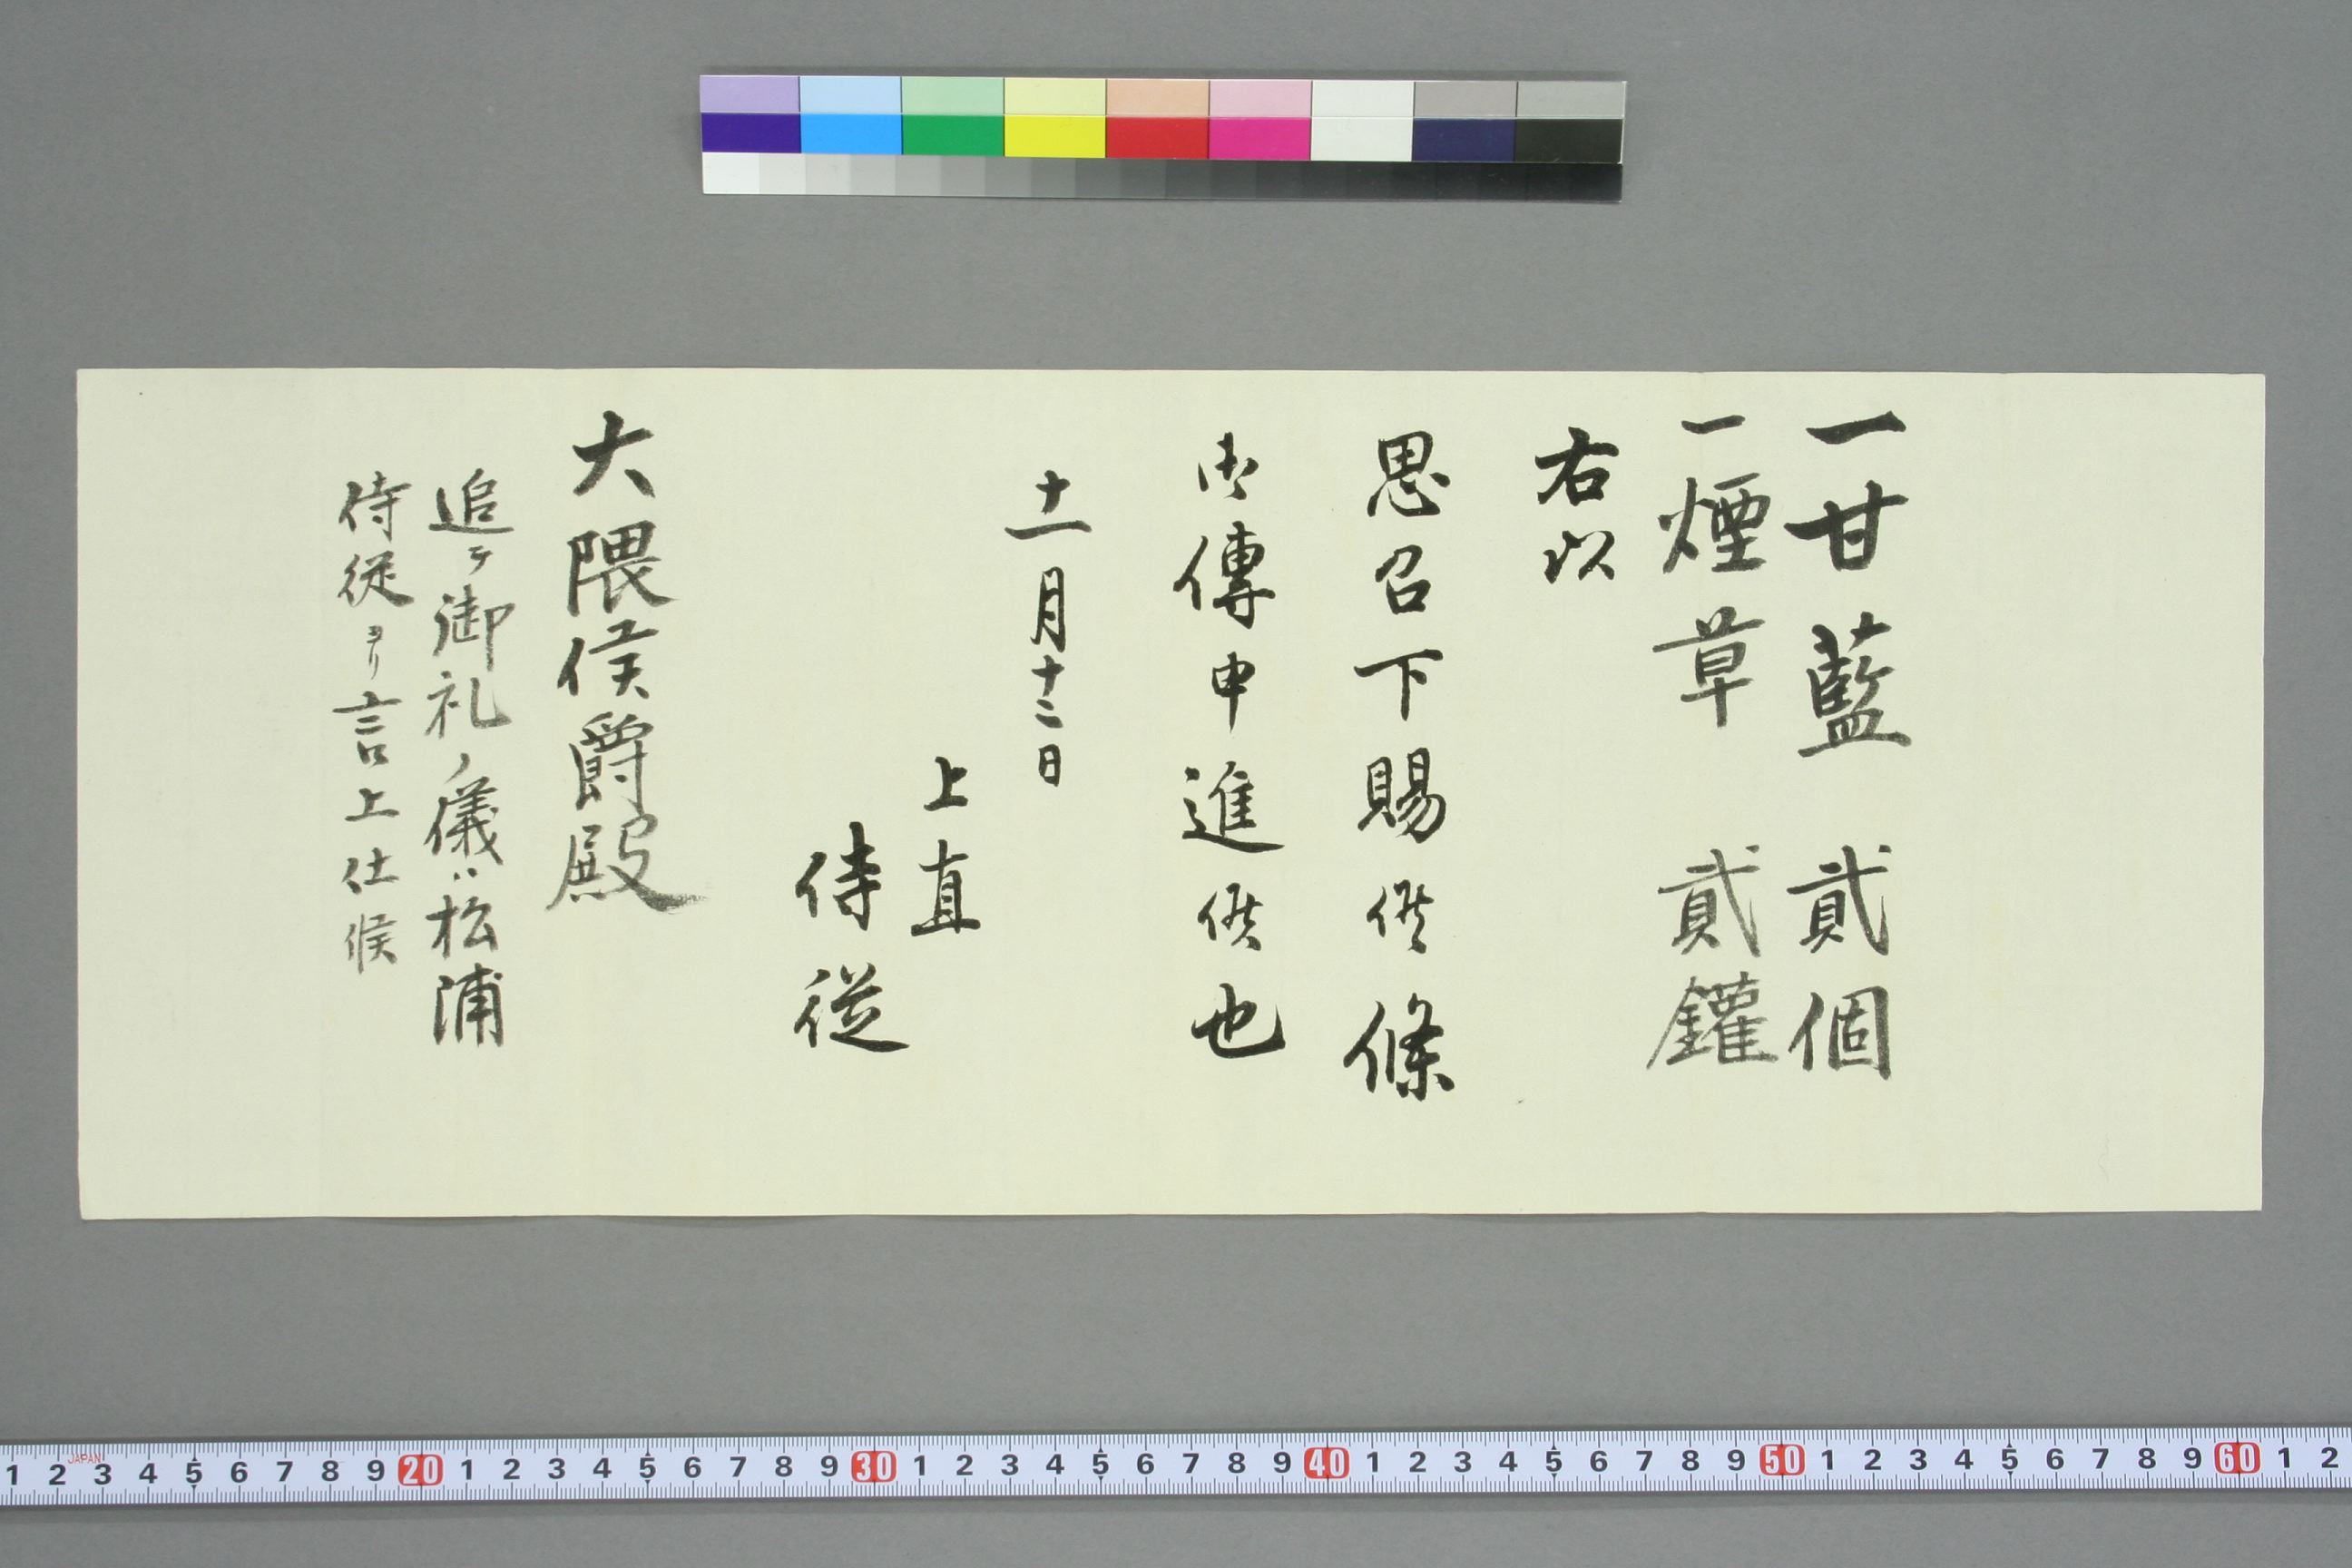 一甘藍　貳個
一煙草　貳鑵
右以
思召下賜候條
御傳申進候也
十一月十二日
上直
侍従
大隈侯爵殿
追テ御礼ノ儀ハ松浦
侍従ヨリ言上仕候
JAPAN
1 2 3 4 5 6 7 8 9 20 1 2 3 4 5 6 7 8 9 30 1 2 3 4 5 6 7 8 9 40 1 2 3 4 5 6 7 8 9 50 1 2 3 4 5 6 7 8 9 60 1 2